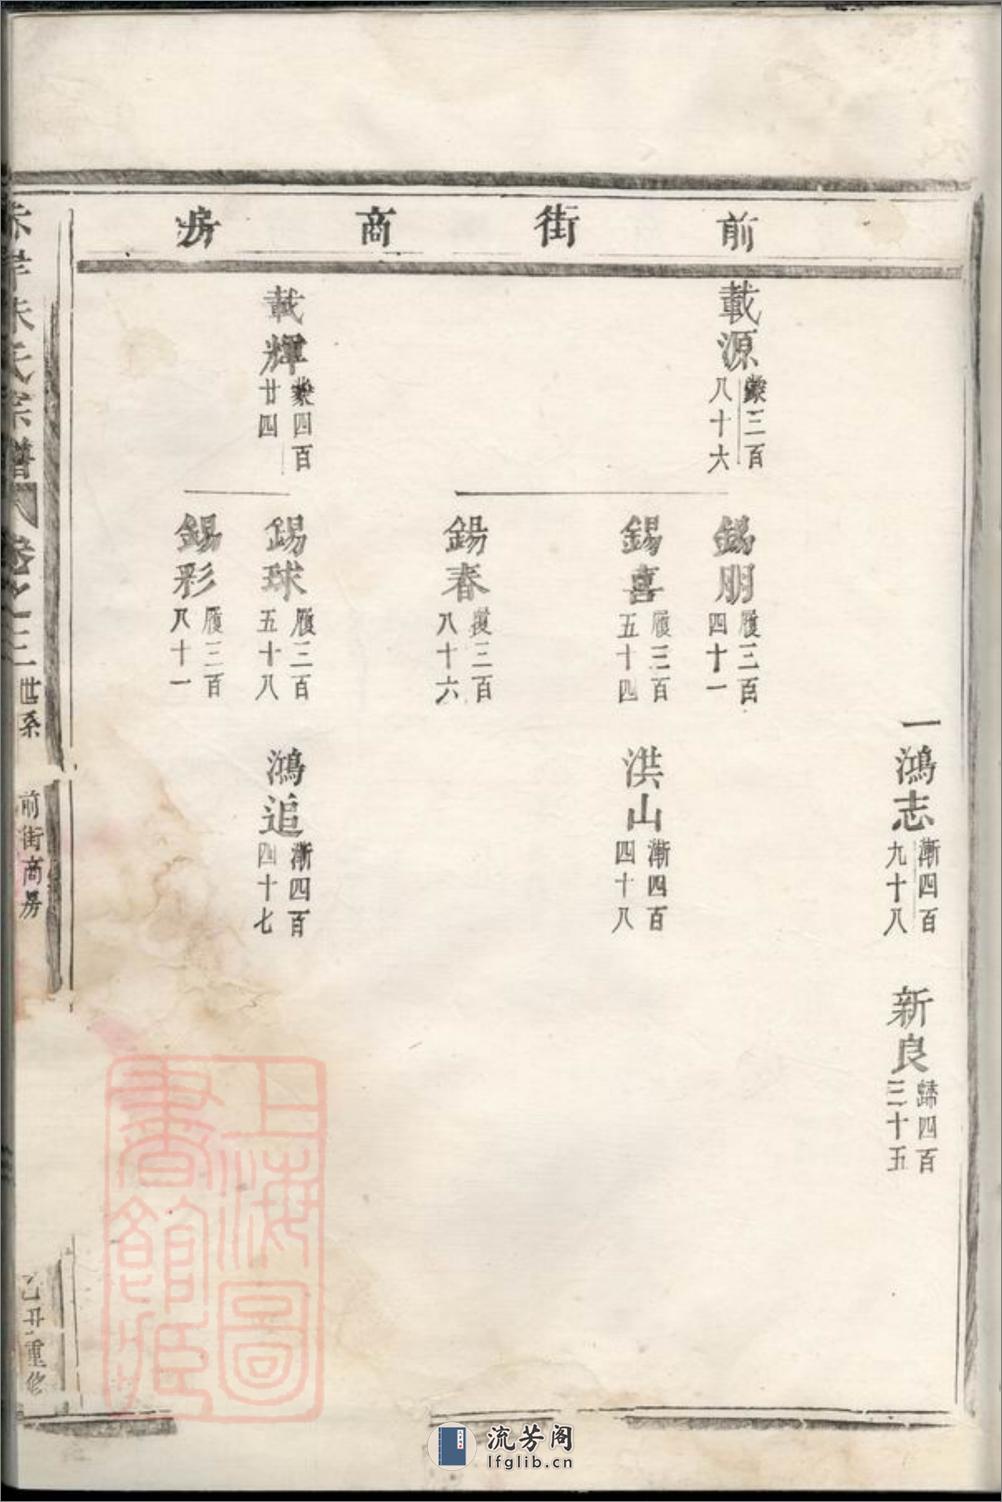 前街商房
一鴻志 漸四百九十八
新良 歸四百三十五
載源 蒙三百八十六
錫朋 履三百四十一
錫喜 履三百五十四
洪山 漸四百四十八
錫春 履三百八十六
載輝 蒙四百廿四
錫球 履三百五十八
鴻追 漸四百四十七
錫彩 履三百八十一
赤岸朱氏宗譜 卷之三 世系 前街商房 乙丑重修
上海圖書館藏
流芳阁
lfglib.cn